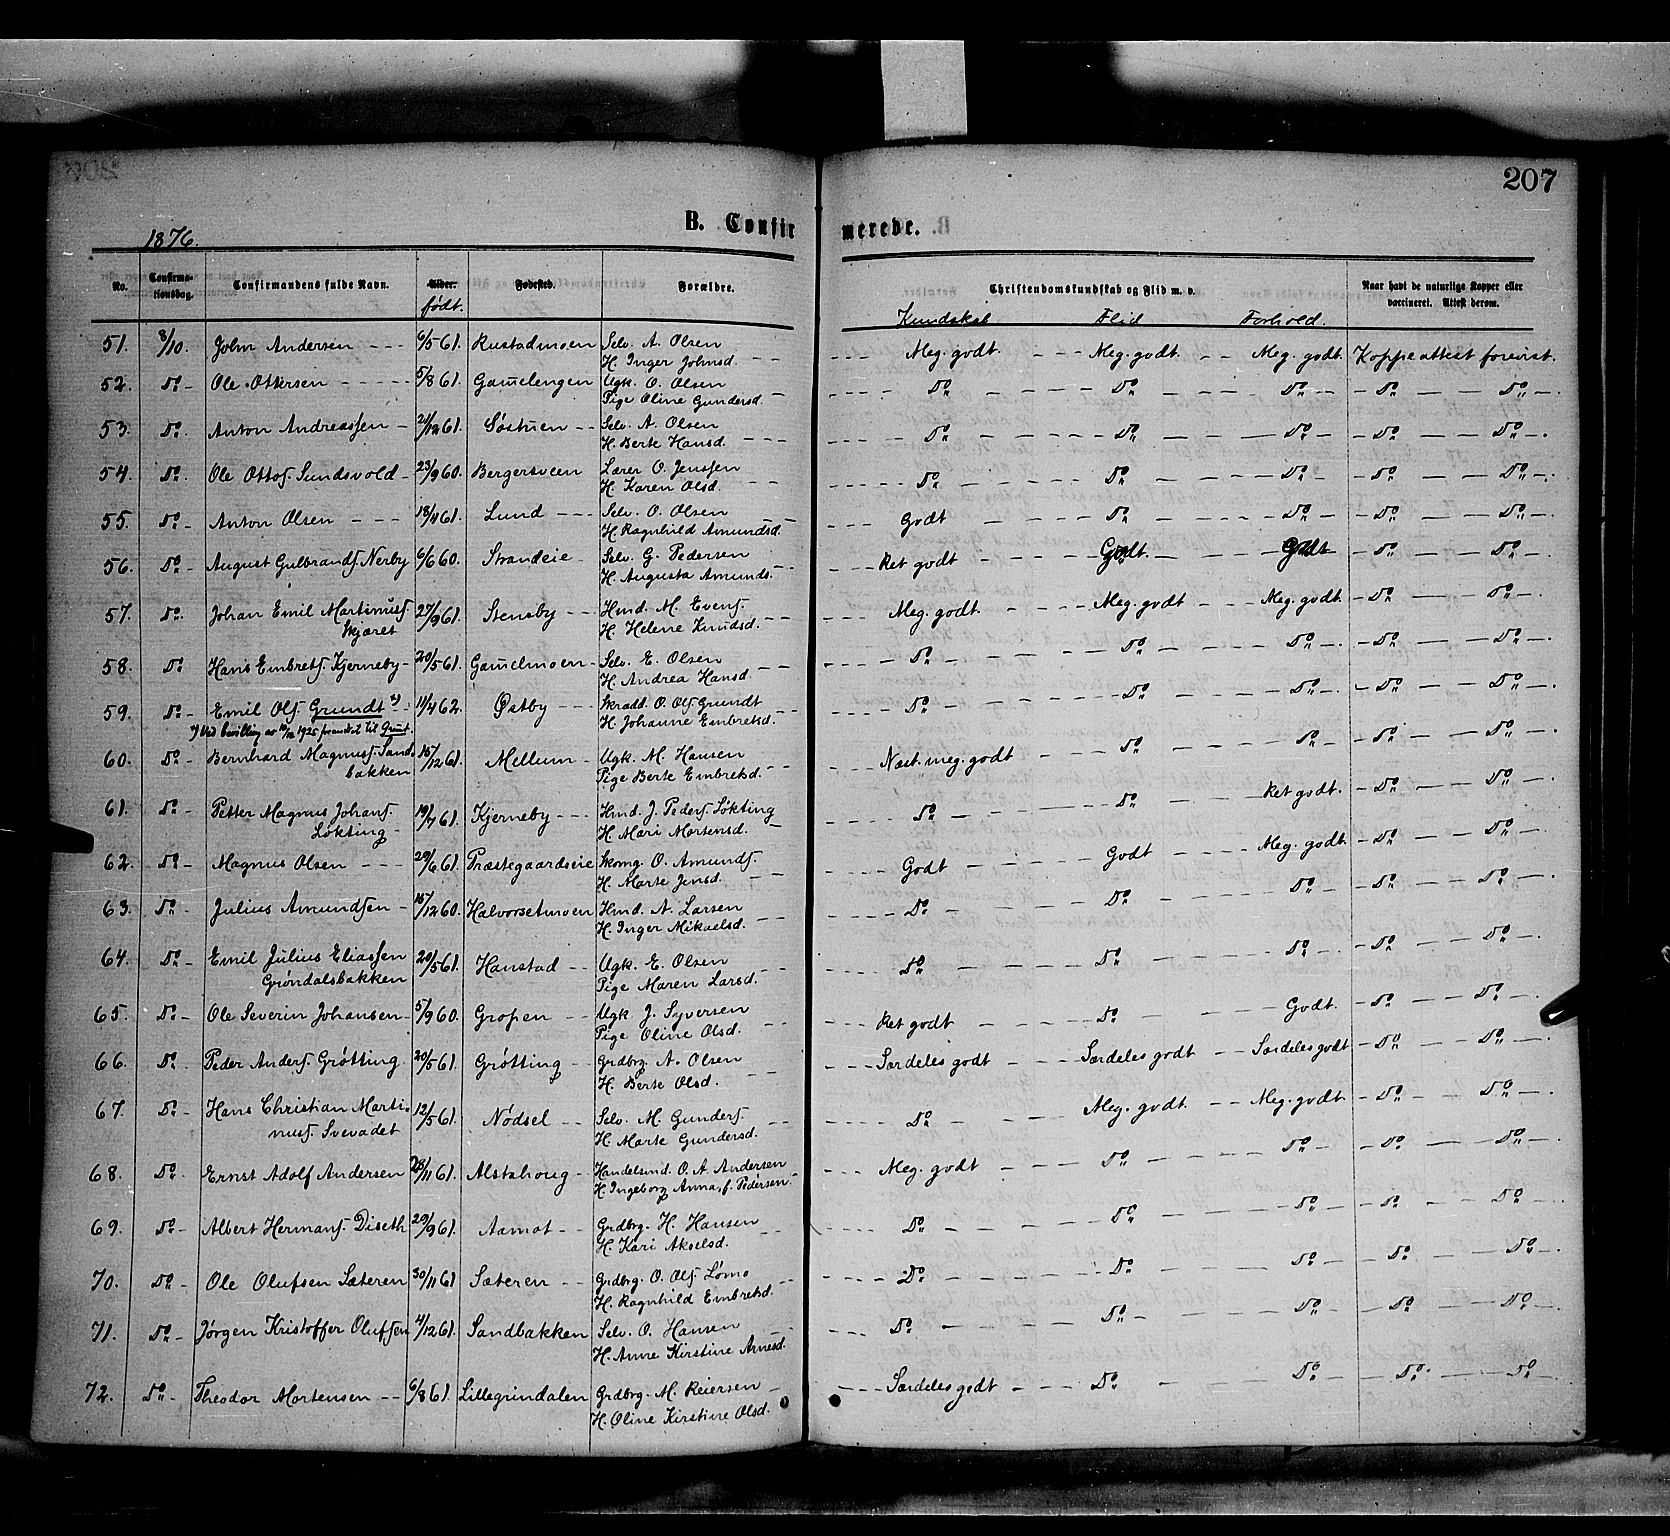 207
B. Confirmerede.
1876.
No. Confirmationsdag. Confirmandens fulde Navn. Alder. født. Fødested. Forældre. Christendomskundskab og Flid m. v. Kundskab Flid Forhold. Naar havt de naturlige Kopper eller vaccineret. Attest derom.
51. 8/10. John Andersen 6/5 61. Rustadmoen Selv. A. Olsen Meg. godt. Meg. godt. Meg. godt. Koppeattest forevist.
H. Inger Johnsd.
52. Do Ole Ottersen 5/8 61. Gamlengen Ugk. O. Olsen Do Do Do Do Do
Pige Oline Gundersd.
53. Do Anton Andreassen 21/12 61. Søstuen Selv. A. Olsen Do Do Do Do Do
H. Berte Hansd.
54. Do Ole Ottos. Sundsvold 23/9 60. Bergersveen Lærer O. Jenssen Do Do Do Do Do
H. Karen Olsd.
55. Do Anton Olsen 18/4 61. Lund Selv. O. Olsen Godt Do Do Do Do
H. Ragnhild Amundsd.
56. Do August Gulbrands. Nerby 6/6 60. Strandeie Selv. G. Pedersen Ret godt Godt. Godt Do Do
H. Augusta Amunds.
57. Do Johan Emil Martinus. 27/9 61. Stensby Hmd. M. Evens. Meg. godt. Meg. godt Meg. godt. Do Do
Skjæret H. Helene Knudsd.
58. Do Hans Embrets. Kjerneby 20/5 61. Gamelmoen Selv. E. Olsen Do Do Do Do Do
H. Andrea Hansd.
59. Do Emil Ols. Grundt *) 11/4 62. Østby Skrædd. O. Ols. Grundt Do Do Do Do Do
*) Ved bevilling av 1925 forandret til Grunt. H. Johanne Embretsd.
60. Do Bernhard Magnus. Sand- 15/12 61. Mellum Ugk. M. Hansen Næst. meg. godt Do Do Do Do
bakken Pige Berte Embretsd.
61. Do Petter Magnus Johans. 19/7 61. Kjerneby Hmd. J. Peders. Løkting Do Do Ret godt. Do Do
Løkting H. Mari Mortensd.
62. Do Magnus Olsen 29/6 61. Præstegaardseie Skomg. O. Amunds. Godt Godt Meg. godt. Do Do
H. Marte Jensd.
63. Do Julius Amundsen 15/12 60. Halvorsetmoen Hmd. A. Larsen Do Do Do Do Do
H. Inger Mikaelsd.
64. Do Emil Julius Eliassen 20/5 61. Hanstad Ugk. E. Olsen Do Do Do Do Do
Grøndalsbakken Pige Maren Larsd.
65. Do Ole Severin Johansen 5/9 60. Gropen Ugk. J. Syversen Ret godt Do Godt. Do Do
Pige Oline Olsd.
66. Do Peder Anders. Grøtting 20/5 61. Grøtting Grdbrg. A. Olsen Særdeles godt Særdeles godt Særdeles godt Do Do
H. Berte Olsd.
67. Do Hans Christian Marti- 12/5 61. Nødsel Selv. M. Gunders. Do Meg. godt. Meg. godt Do Do
nus. Svevadet H. Marte Gundersd.
68. Do Ernst Adolf Andersen 28/11 61. Alstahoug Handelsmd. O. A. Andersen Meg. godt Do Do Do Do
H. Ingeborg Anna, f. Pedersen.
69. Do Albert Hermans. Diseth 29/9 61. Aamot Grdbrg. H. Hansen Do Do Do Do Do
H. Kari Akselsd.
70. Do Ole Olufsen Sæteren 30/11 61 Sæteren Grdbrg. O. Ols. Lømo Do Do Do Do Do
H. Ragnhild Embretsd.
71. Do Jørgen Kristoffer Olufsen 4/12 61. Sandbakken Selv. O. Hansen Do Do Do Do Do
H. Anne Kirstine Arnesd.
72. Do Theodor Mortensen 6/8 61. Lillegrindalen Grdbrg. M. Reiersen Særdeles godt Do Do Do Do
H. Oline Kirstine Olsd.